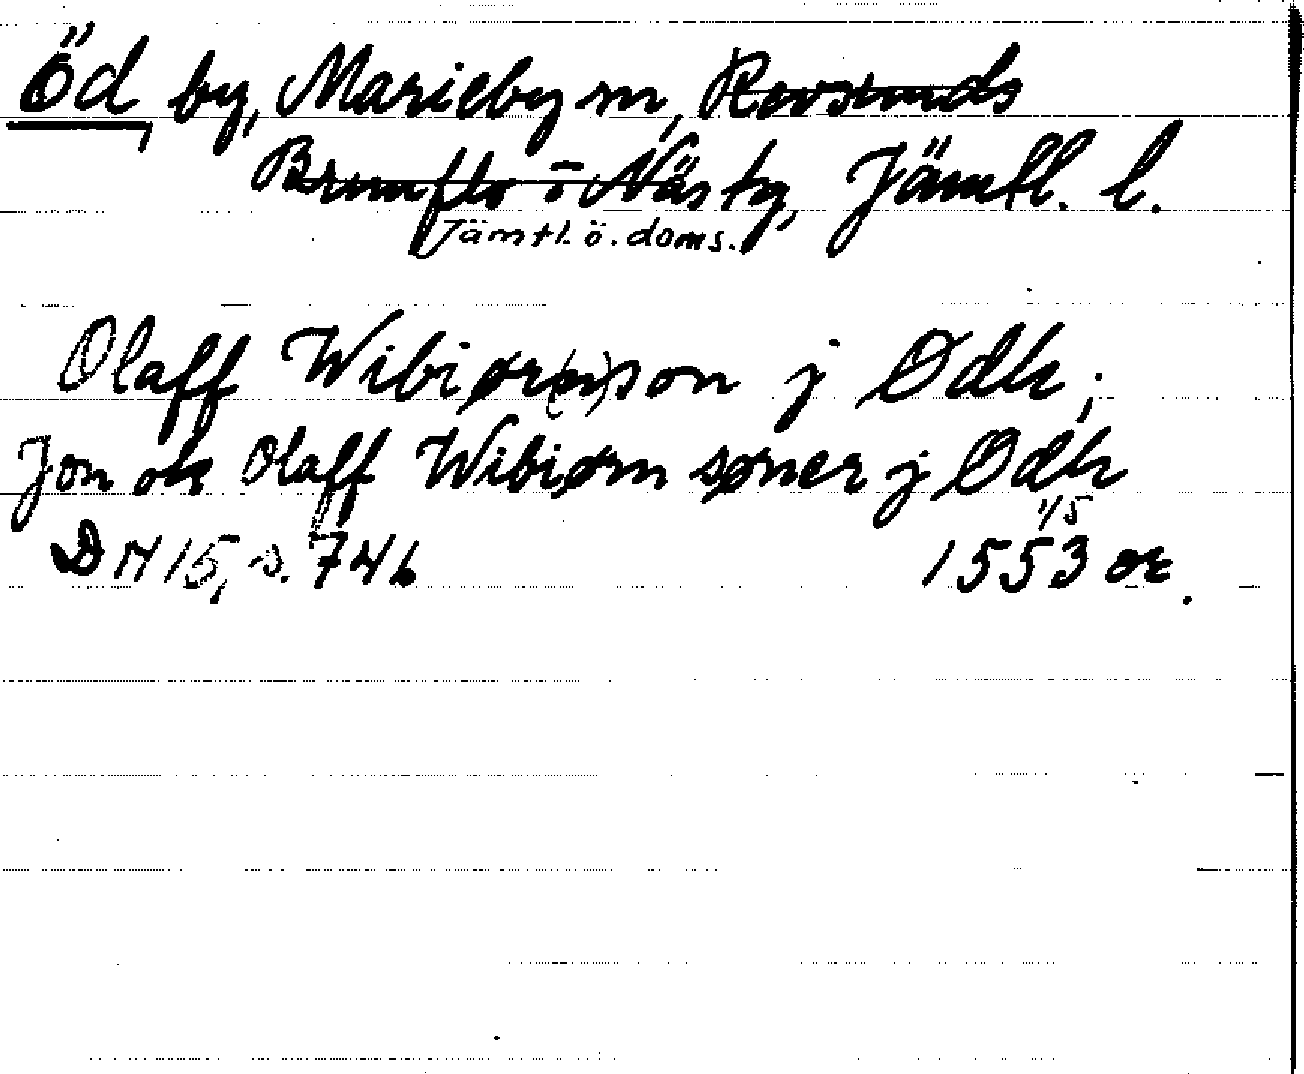 Öd, by, Marieby sn, Revsunds
Brunflo o Näs tg, Jämtl. l.
Jämtl. ö. doms.
Olaff Wibiørn(en)son j Ødh;
Jon ok Olaff Wibiørn søner j Ødh
1/5
DN 15, s. 746 1553 or.